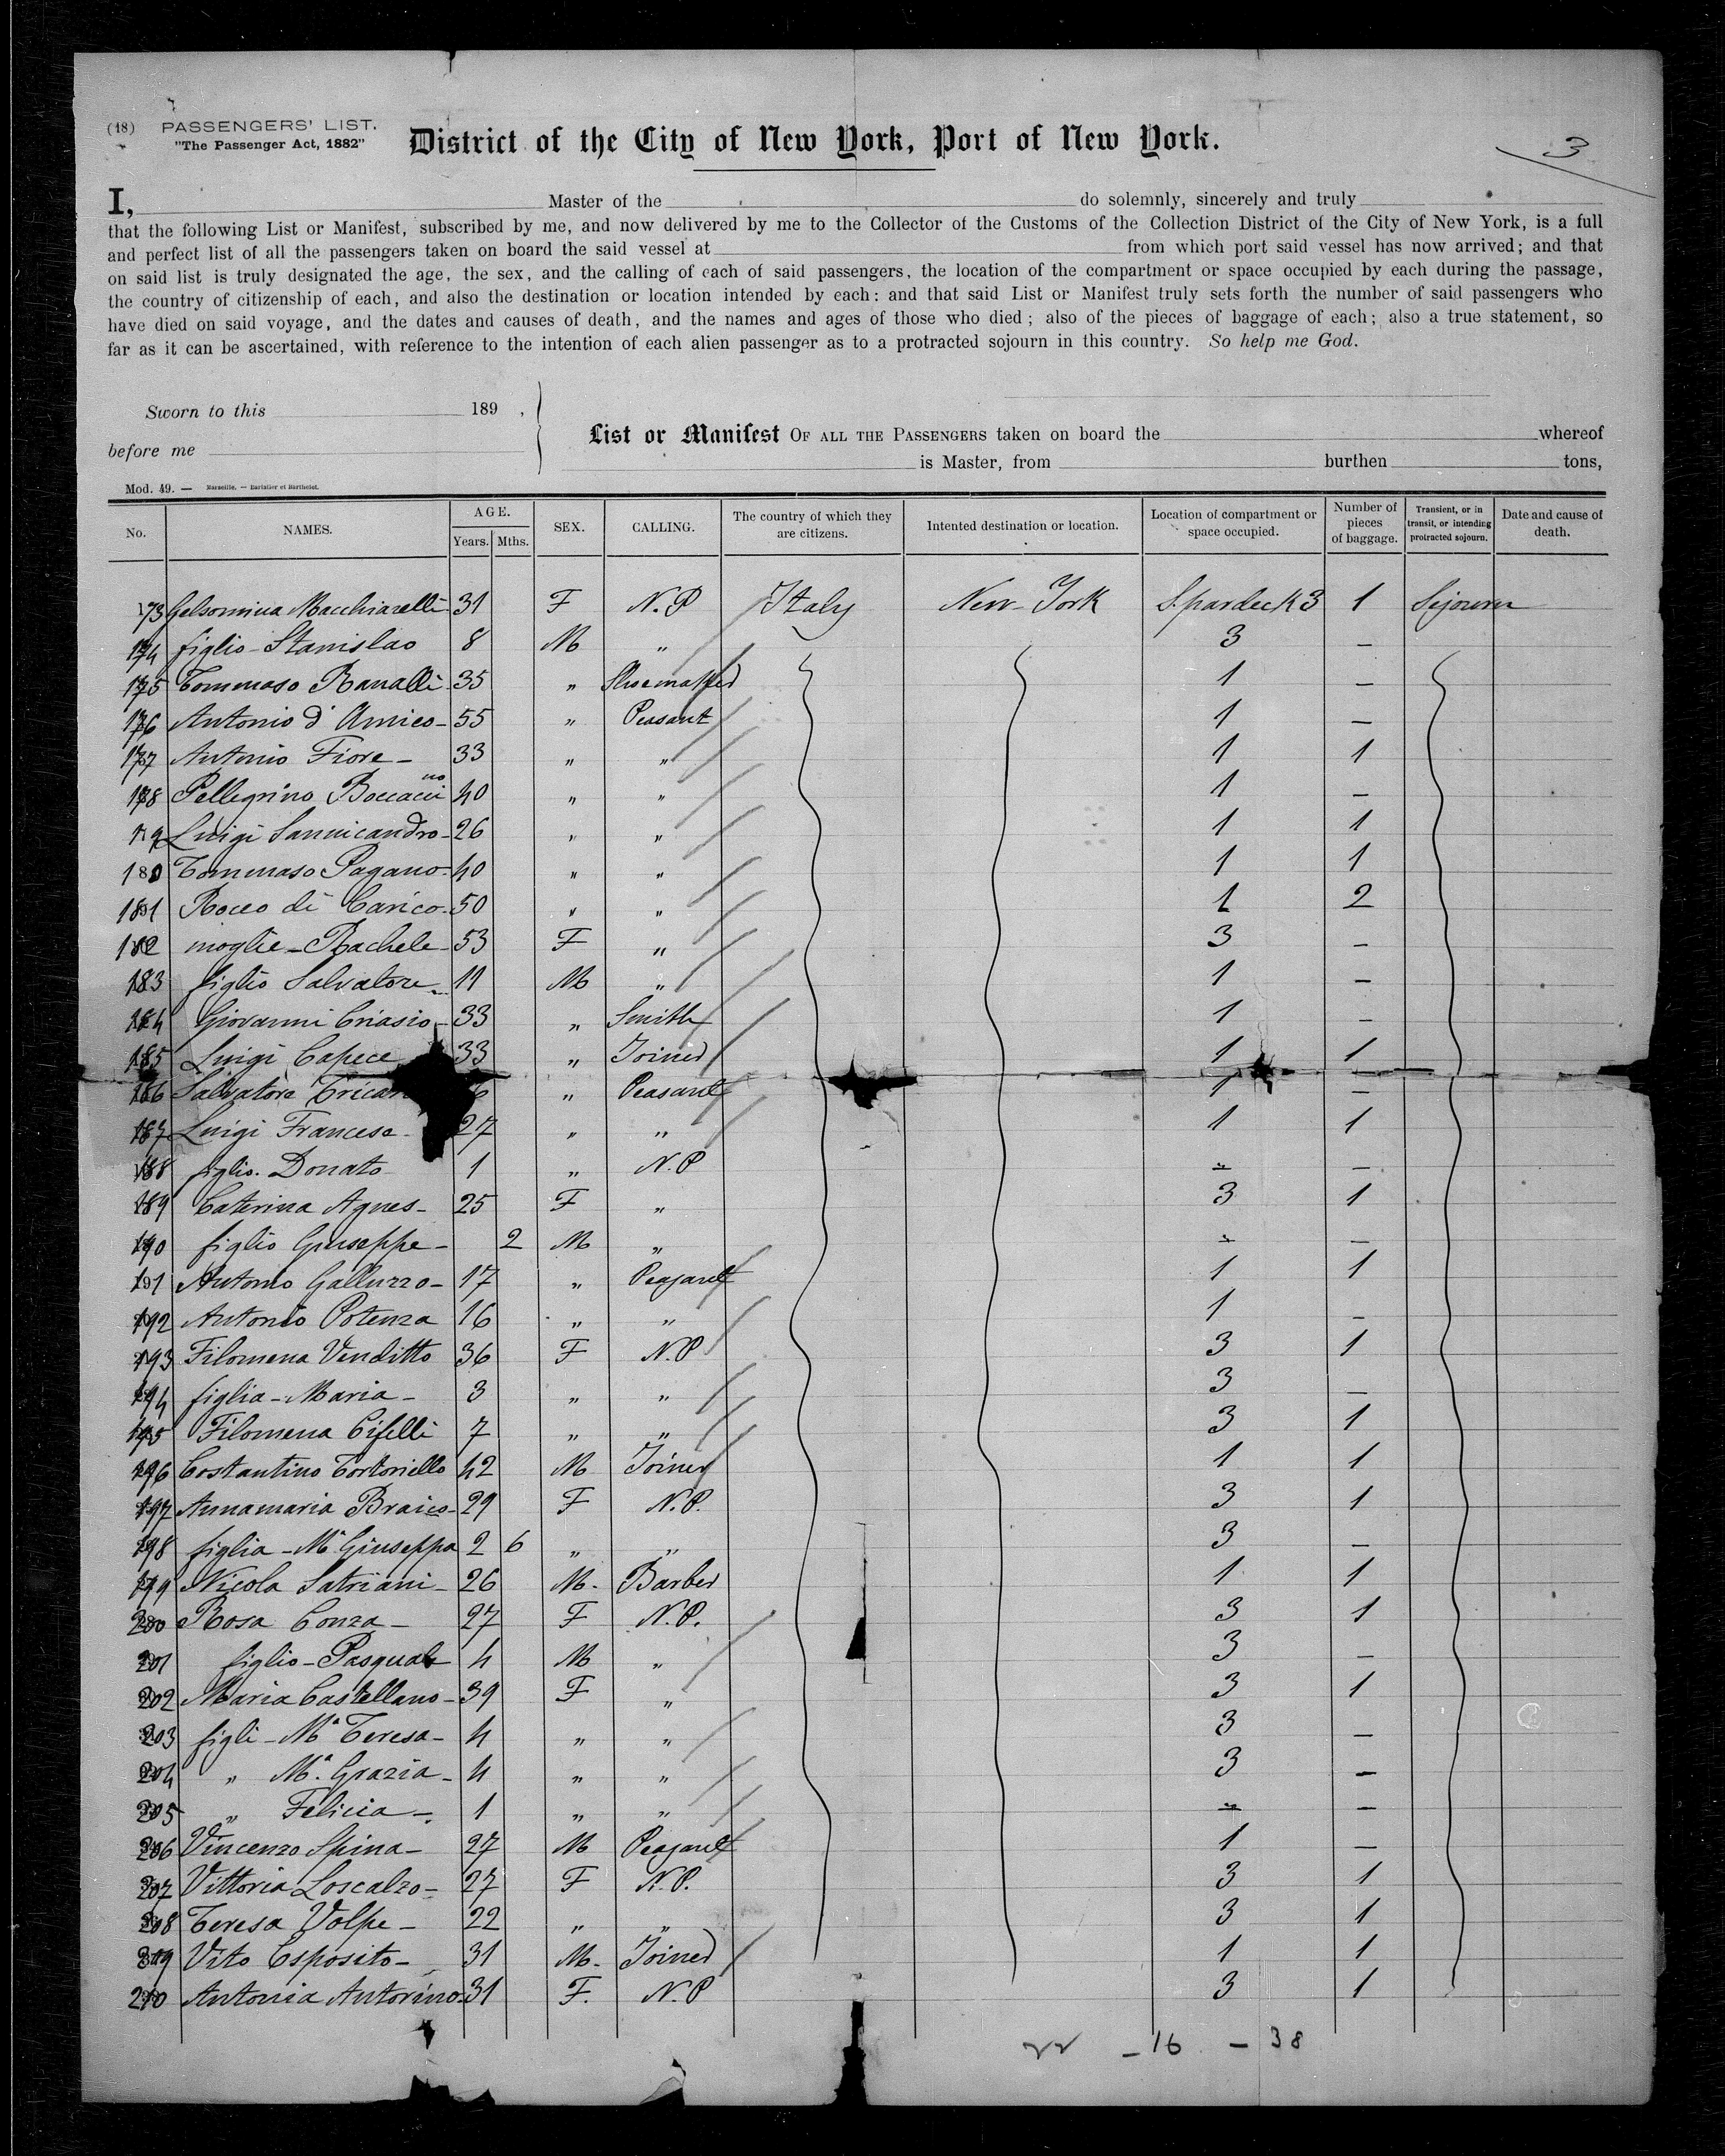 (18) PASSENGERS' LIST.
"The Passenger Act, 1882"
District of the City of New York, Port of New York.
3
I, Master of the do solemnly, sincerely and truly
that the following List or Manifest, subscribed by me, and now delivered by me to the Collector of the Customs of the Collection District of the City of New York, is a full
and perfect list of all the passengers taken on board the said vessel at from which port said vessel has now arrived; and that
on said list is truly designated the age, the sex, and the calling of each of said passengers, the location of the compartment or space occupied by each during the passage,
the country of citizenship of each, and also the destination or location intended by each: and that said List or Manifest truly sets forth the number of said passengers who
have died on said voyage, and the dates and causes of death, and the names and ages of those who died; also of the pieces of baggage of each; also a true statement, so
far as it can be ascertained, with reference to the intention of each alien passenger as to a protracted sojourn in this country. So help me God.
Sworn to this 189 ,
before me
List or Manifest OF ALL THE PASSENGERS taken on board the whereof
is Master, from burthen tons,
Mod. 49. — Marseille. — Barlatier et Barthelet.
No. NAMES. AGE. Years. Mths. SEX. CALLING. The country of which they are citizens. Intented destination or location. Location of compartment or space occupied. Number of pieces of baggage. Transient, or in transit, or intending protracted sojourn. Date and cause of death.
173 Gelsomina Macchiarelli 31 F N.P Italy New-York Spardeck 3 1 Sejourn
174 figlio - Stanislao 8 M „ 3 —
175 Tommaso Ranalli 35 „ Shoemaker 1 —
176 Antonio d'Amico - 55 „ Peasant 1 —
177 Antonio Fiore - 33 „ „ 1 1
178 Pellegrino Boccacino 40 „ „ 1 —
179 Luigi Sannicandro - 26 „ „ 1 1
180 Tommaso Pagano - 40 „ „ 1 1
181 Rocco di Carico - 50 „ „ 1 2
182 moglie - Rachele - 53 F „ 3 —
183 figlio Salvatore 11 M „ 1 —
184 Giovanni Criasio - 33 „ Smith 1 —
185 Luigi Capece 33 „ Joiner 1 1
186 Salvatore „ Peasant 1 —
187 Luigi Francese - 27 „ „ 1 1
188 figlio. Donato 1 „ N.P „ —
189 Caterina Agnes - 25 F „ 3 1
190 figlio Giuseppe - 2 M „ „ —
191 Antonio Galluzzo - 17 „ Peasant 1 1
192 Antonio Potenza 16 „ „ 1 —
193 Filomena Venditto 36 F N.P 3 1
194 figlia - Maria - 3 „ „ 3 —
195 Filomena Cifelli 7 „ „ 3 1
196 Costantino Tortoriello 42 M Joiner 1 1
197 Annamaria Braico - 29 F N.P. 3 1
198 figlia - Mª Giuseppa 2 6 „ „ 3 —
199 Nicola Satriani - 26 M. Barber 1 1
200 Rosa Conza - 27 F N.P. 3 1
201 figlio - Pasquale 4 M „ 3 —
202 Maria Castellano - 39 F „ 3 1
203 figli - Mª Teresa - 4 „ „ 3 —
204 „ Mª. Grazia - 4 „ „ 3 —
205 „ Felicia - 1 „ „ „ —
206 Vincenzo Spina - 27 M Peasant 1 —
207 Vittoria Loscalzo - 27 F N.P. 3 1
208 Teresa Volpe - 22 „ „ 3 1
209 Vito Esposito - 31 M. Joiner 1 1
210 Antonia Antorino - 31 F. N.P 3 1
22 - 16 - 38